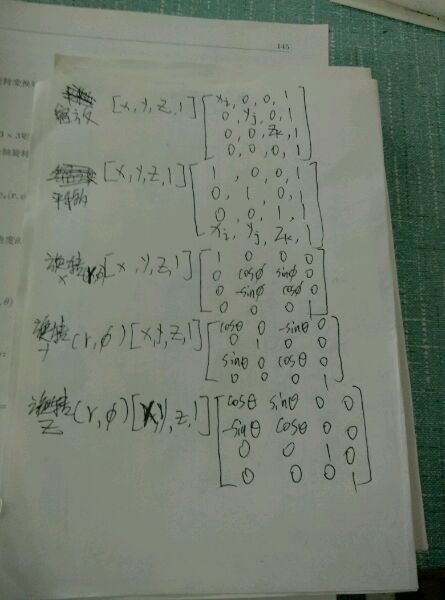 145
缩放 [x, y, z, 1] [xi, 0, 0, 1
0, yj, 0, 1
0, 0, zk, 1
0, 0, 0, 1]
平移 [x, y, z, 1] [1 , 0, 0, 1
0, 1, 0, 1
0, 0, 1, 1
xi, yj, zk, 1]
旋转x [x, y, z, 1] [1 0 0 0
0 cosϕ sinϕ 0
0 -sinϕ cosϕ 0
0 0 0 1]
旋转y (r, ϕ) [x, y, z, 1] [cosθ 0 -sinθ 0
0 1 0 0
sinθ 0 cosθ 0
0 0 0 1]
旋转z (r, ϕ) [x, y, z, 1] [cosθ sinθ 0 0
-sinθ cosθ 0 0
0 0 1 0
0 0 0 1]